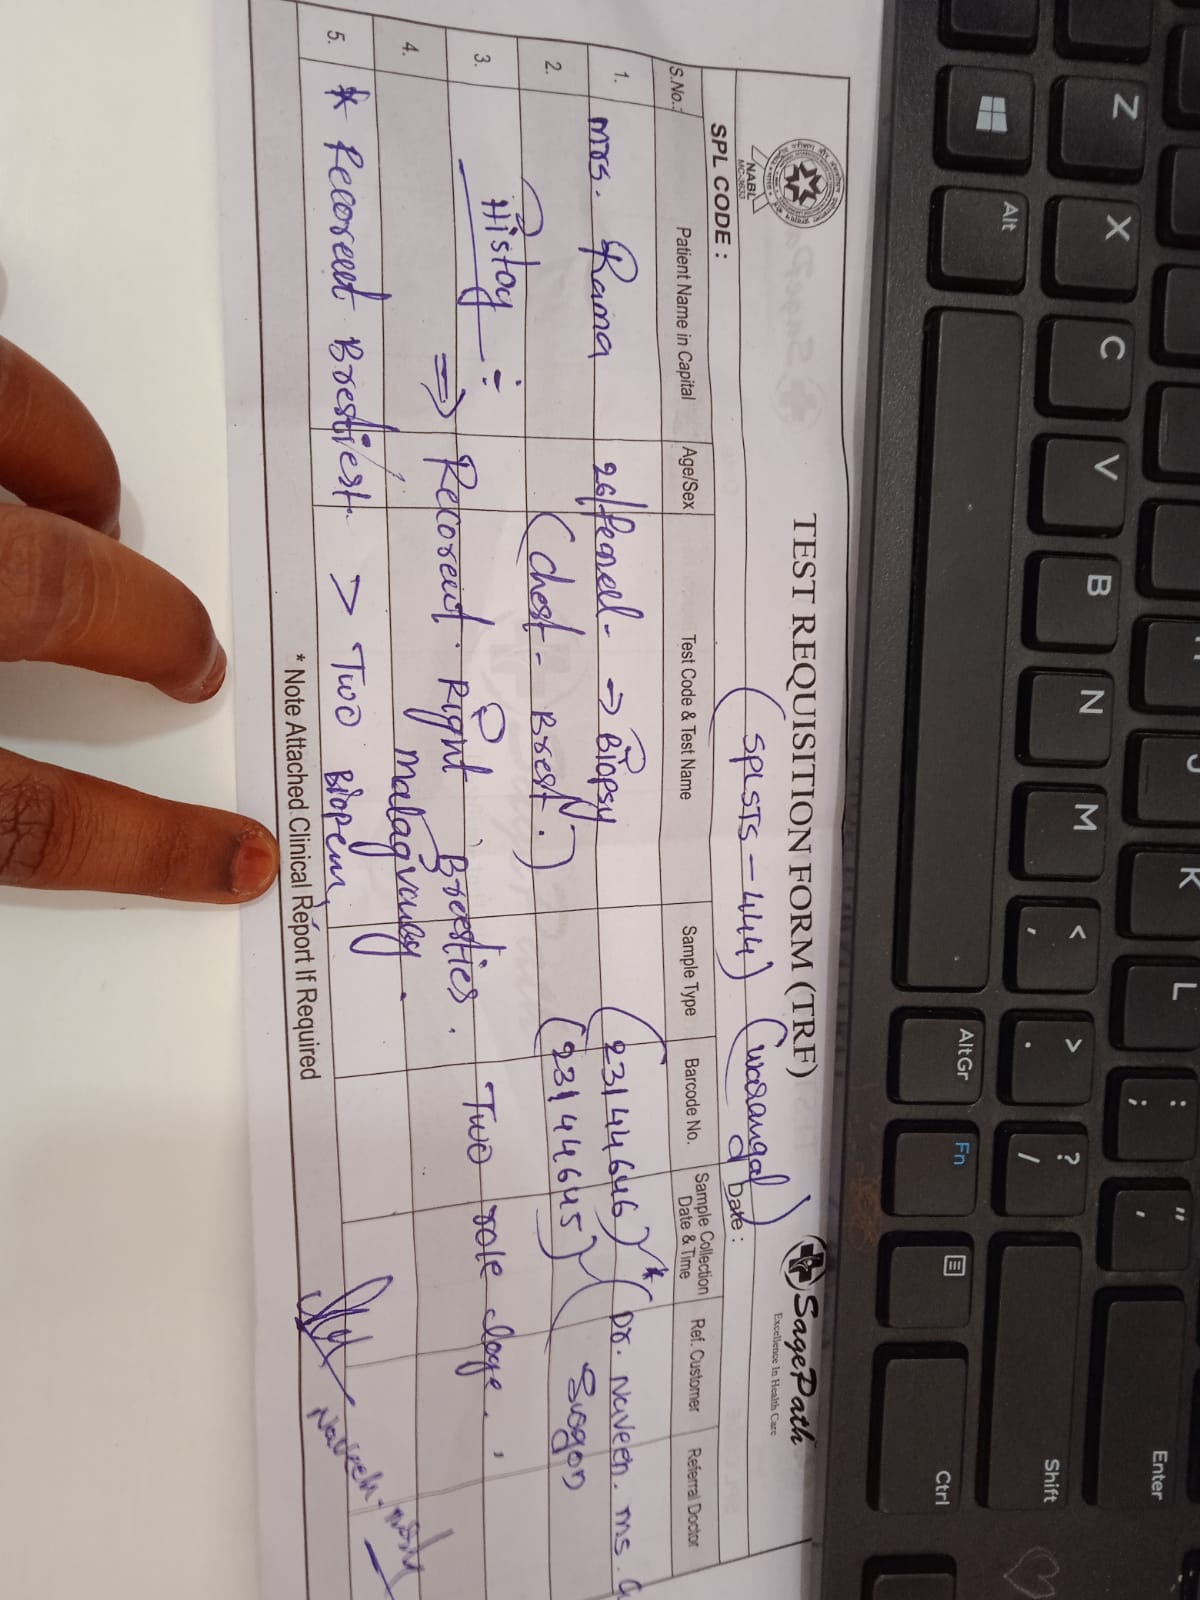 TEST REQUISITION FORM (TRF)
SagePath
Excellence In Health Care
NABL
MC-3633
SPL CODE :
(SPLSTS-444) (Warangal)
Date :
S.No.: Patient Name in Capital Age/Sex Test Code & Test Name Sample Type Barcode No. Sample Collection Date & Time Ref. Customer Referral Doctor
1. Mrs. Rama 26/femeel- → Biopsy (23144646) * (Dr. Naveen. MS. G
2. (Chest- Brest.) (23144645)
3. History:
⇒ Recoreut. Right Bresties. Two role
4.
5. * Recoreut Brestiest. > Two
Naveen
* Note Attached Clinical Report If Required
Z X C V B N M < , > . ? / Shift
K L : ; " ' Enter
Alt AltGr Fn Ctrl